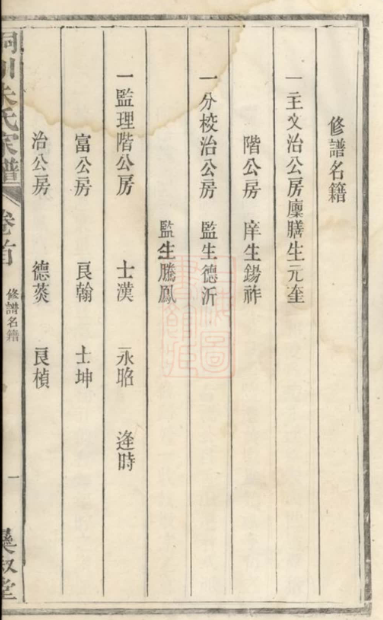 修譜名籍
一主文治公房廩膳生元奎
階公房 庠生錫祚
一分校治公房 監生德沂
監生騰鳳
一監理階公房 士漢 永昭 逢時
富公房 良翰 士坤
治公房 德葵 良楨
氏宗譜 卷首 修譜名籍 一 堂